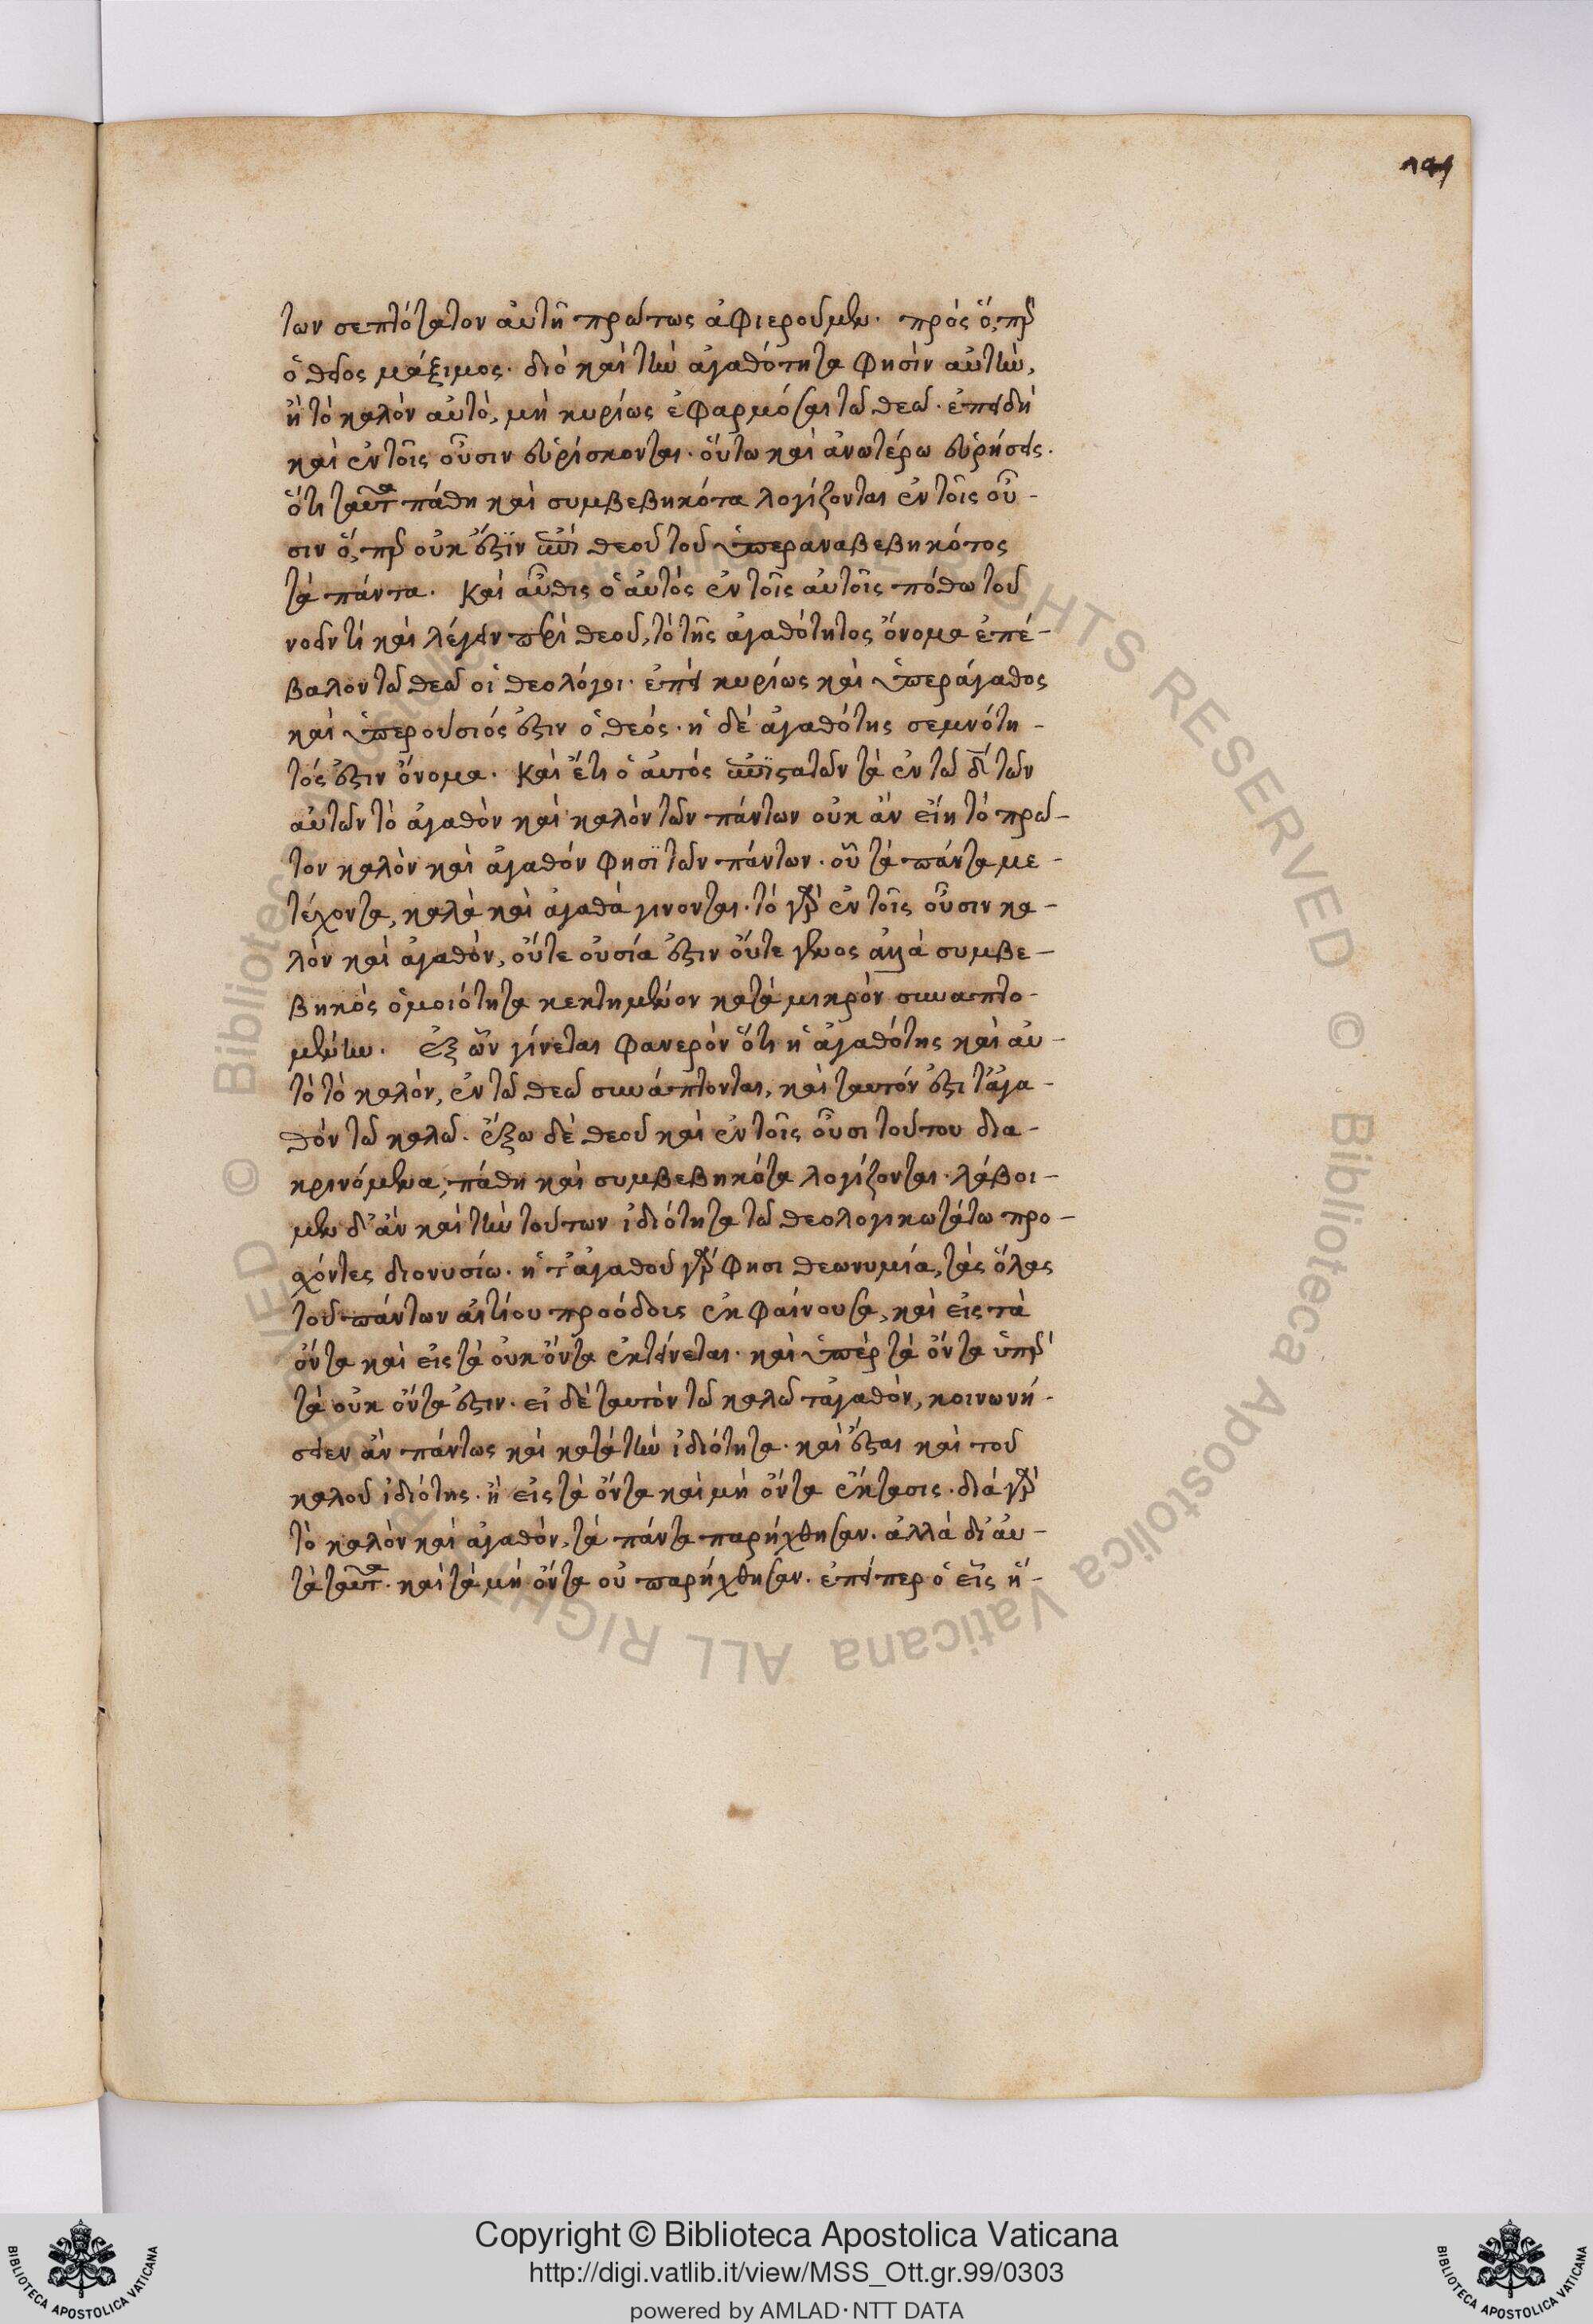 191
των σεπτότατον αὐτῆ πρώτως ἀφιεροῦμεν. πρὸς ὅ,περ
ὁ θεῖος μάξιμος. διὸ καὶ τὴν ἀγαθότητα φησὶν αὐτὴν,
ἢ τὸ καλὸν αὐτὸ, μὴ κυρίως ἐφαρμόσαι τῶ θεῶ. ἐπειδὴ
καὶ ἐν τοῖς οὖσιν εὑρίσκονται. οὕτω καὶ ἀνωτέρω εὑρήσεις.
ὅτι ταῦτα πάθη καὶ συμβεβηκότα λογίζονται ἐν τοῖς οὖ-
σιν ὅ,περ οὐκ ἔστιν ἐπὶ θεοῦ τοῦ ὑπεραναβεβηκότος
τὰ πάντα. Καὶ αὖθις ὁ αὐτὸς ἐν τοῖς αὐτοῖς πόθω τοῦ
νοεῖν τί καὶ λέγειν περὶ θεοῦ, τὸ τῆς ἀγαθότητος ὄνομα ἐπέ-
βαλον τῶ θεῶ οἱ θεολόγοι. ἐπεὶ κυρίως καὶ ὑπεράγαθος
καὶ ὑπερούσιός ἐστιν ὁ θεός. ἡ δὲ ἀγαθότης σεμνότη-
τός ἐστιν ὄνομα. Καὶ ἔτι ὁ αὐτὸς ἐπιστατῶν τὰ ἐν τῶ δ τῶν
αὐτῶν τὸ ἀγαθὸν καὶ καλὸν τῶν πάντων οὐκ ἂν εἴη τὸ πρῶ-
τον καλὸν καὶ ἀγαθόν φησι τῶν πάντων. οὗ τὰ πάντα με-
τέχοντα, καλὰ καὶ ἀγαθὰ γίνονται. τὸ γὰρ ἐν τοῖς οὖσιν κα-
λὸν καὶ ἀγαθὸν, οὔτε οὐσία ἐστιν οὔτε γένος ἀλλὰ συμβε-
βηκὸς ὁμοιότητα κεκτημένον κατὰ μικρὸν συναπτο-
μένην. ἐξ ὧν γίνεται φανερὸν ὅτι ἡ ἀγαθότης καὶ αὐ-
τὸ τὸ καλὸν, ἐν τῶ θεῶ συνάπτονται, καὶ ταυτόν ἐστι τἀγα-
θὸν τῶ καλῶ. ἔξω δὲ θεοῦ καὶ ἐν τοῖς οὖσι τούτου δια-
κρινόμενα, πάθη καὶ συμβεβηκότα λογίζονται. λάβοι-
μεν δ' ἂν καὶ τὴν τούτων ἰδιότητα τῶ θεολογικωτάτω προ-
σχόντες διονυσίω. ἡ τἀγαθοῦ γάρ φησι θεωνυμία, τὰς ὅλας
τοῦ πάντων αἰτίου προόδους ἐκφαίνουσα, καὶ εἰς τὰ
ὄντα καὶ εἰς τὰ οὐκ ὄντα ἐκτείνεται. καὶ ὑπὲρ τὰ ὄντα ὑπὲρ
τὰ οὐκ ὄντα ἐστιν. εἰ δὲ ταυτὸν τῶ καλῶ τἀγαθὸν, κοινωνή-
σειεν ἂν πάντως καὶ κατὰ τὴν ἰδιότητα. καὶ ἔσται καὶ τοῦ
καλοῦ ἰδιότης. ἡ εἰς τὰ ὄντα καὶ μὴ ὄντα ἔκτασις. διὰ γὰρ
τὸ καλὸν καὶ ἀγαθὸν, τὰ πάντα παρήχθησαν. ἀλλὰ δι' αὐ-
τὰ ταῦτα. καὶ τὰ μὴ ὄντα οὐ παρήχθησαν. ἐπείπερ ὁ εἷς ἢ-
Copyright © Biblioteca Apostolica Vaticana
http://digi.vatlib.it/view/MSS_Ott.gr.99/0303
powered by AMLAD·NTT DATA